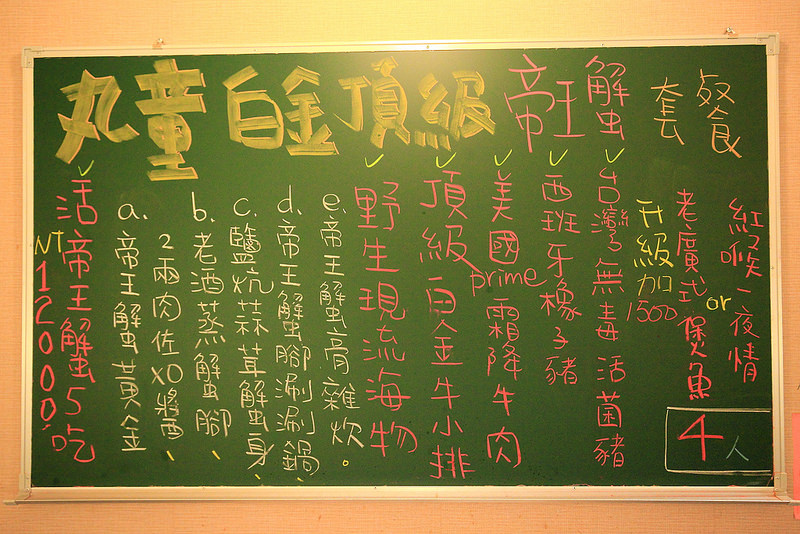 丸童白金頂級帝王蟹套餐
✓活帝王蟹5吃
NT12000.
a.帝王蟹黃金
2兩肉佐XO醬、
b.老酒蒸蟹腳、
c.鹽炕蒜茸蟹身、
d.帝王蟹腳涮涮鍋、
e.帝王蟹膏雜炊。
✓野生現流海物
✓頂級白金牛小排
✓美國prime霜降牛肉
✓西班牙橡子豬
✓台灣無毒活菌豬
升級加1500
老廣式煲魚
or
紅喉一夜情
4人